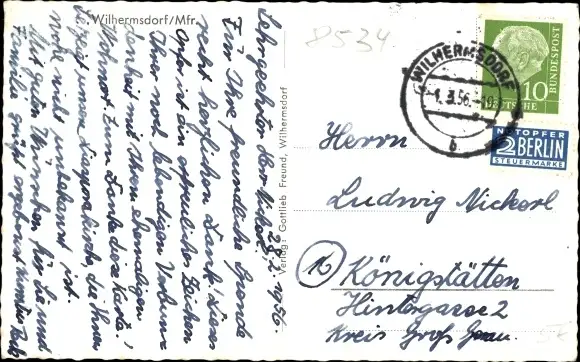 Wilhermsdorf/Mfr.
28.2.1956.
Sehr geehrter Herr Nickerl!
Für Ihre freundliche Spende
recht herzlichen Dank. Dieses
Opfer ist ein erfreuliches Zeichen
Ihrer lebendigen Verbun-
denheit mit Ihrem ehemaligen
Wohnort. Zum Danke diese Karte,
sie zeigt unsere Kirche, die Ihnen
wohl nicht unbekannt ist.
Mit guten Wünschen für Sie und
Familie grüßt
Verlag: Gottlieb Freund, Wilhermsdorf
8534
WILHERMSDORF
-1. 3. 56.
b
10
DEUTSCHE
BUNDESPOST
NOTOPFER
2 BERLIN
STEUERMARKE
Herrn
Ludwig Nickerl
16
Königstätten
Hintergasse 2
Kreis Groß Gerau.